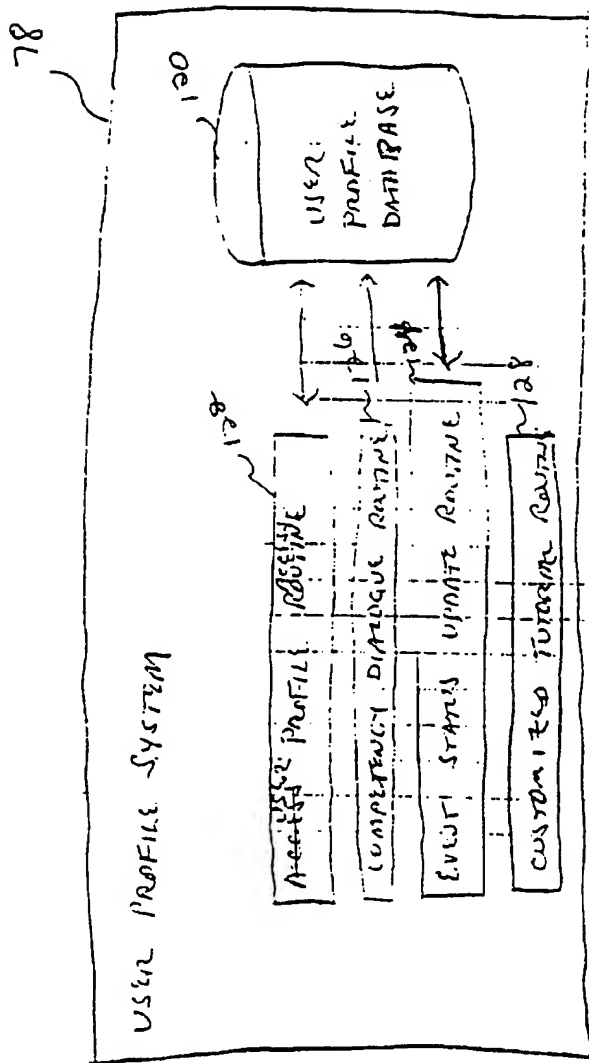 78
USER PROFILE SYSTEM
120
USER
PROFILE
DATABASE
128
USER PROFILE ACCESS ROUTINE
126
COMPETENCY DIALOGUE ROUTINE
124
EVENT STATUS UPDATE ROUTINE
128
CUSTOMIZED TUTORIAL ROUTINE